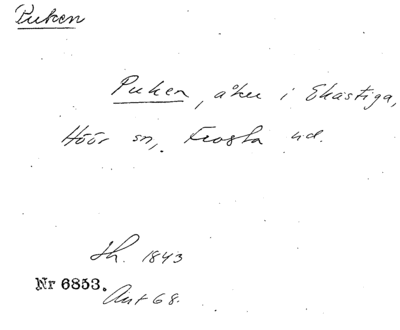 Puken
Puken, åker i Ekastiga,
Höör sn, Frosta hd.
Lh. 1843
Nr 6853.
Ant 68.